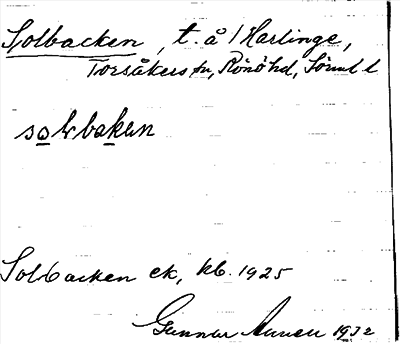 Solbacken, t. å 1 Harlinge,
Torsåkers sn, Rönö hd, Sörml l
solbaken
Solbacken ek, kb. 1925
Gunnar 1932